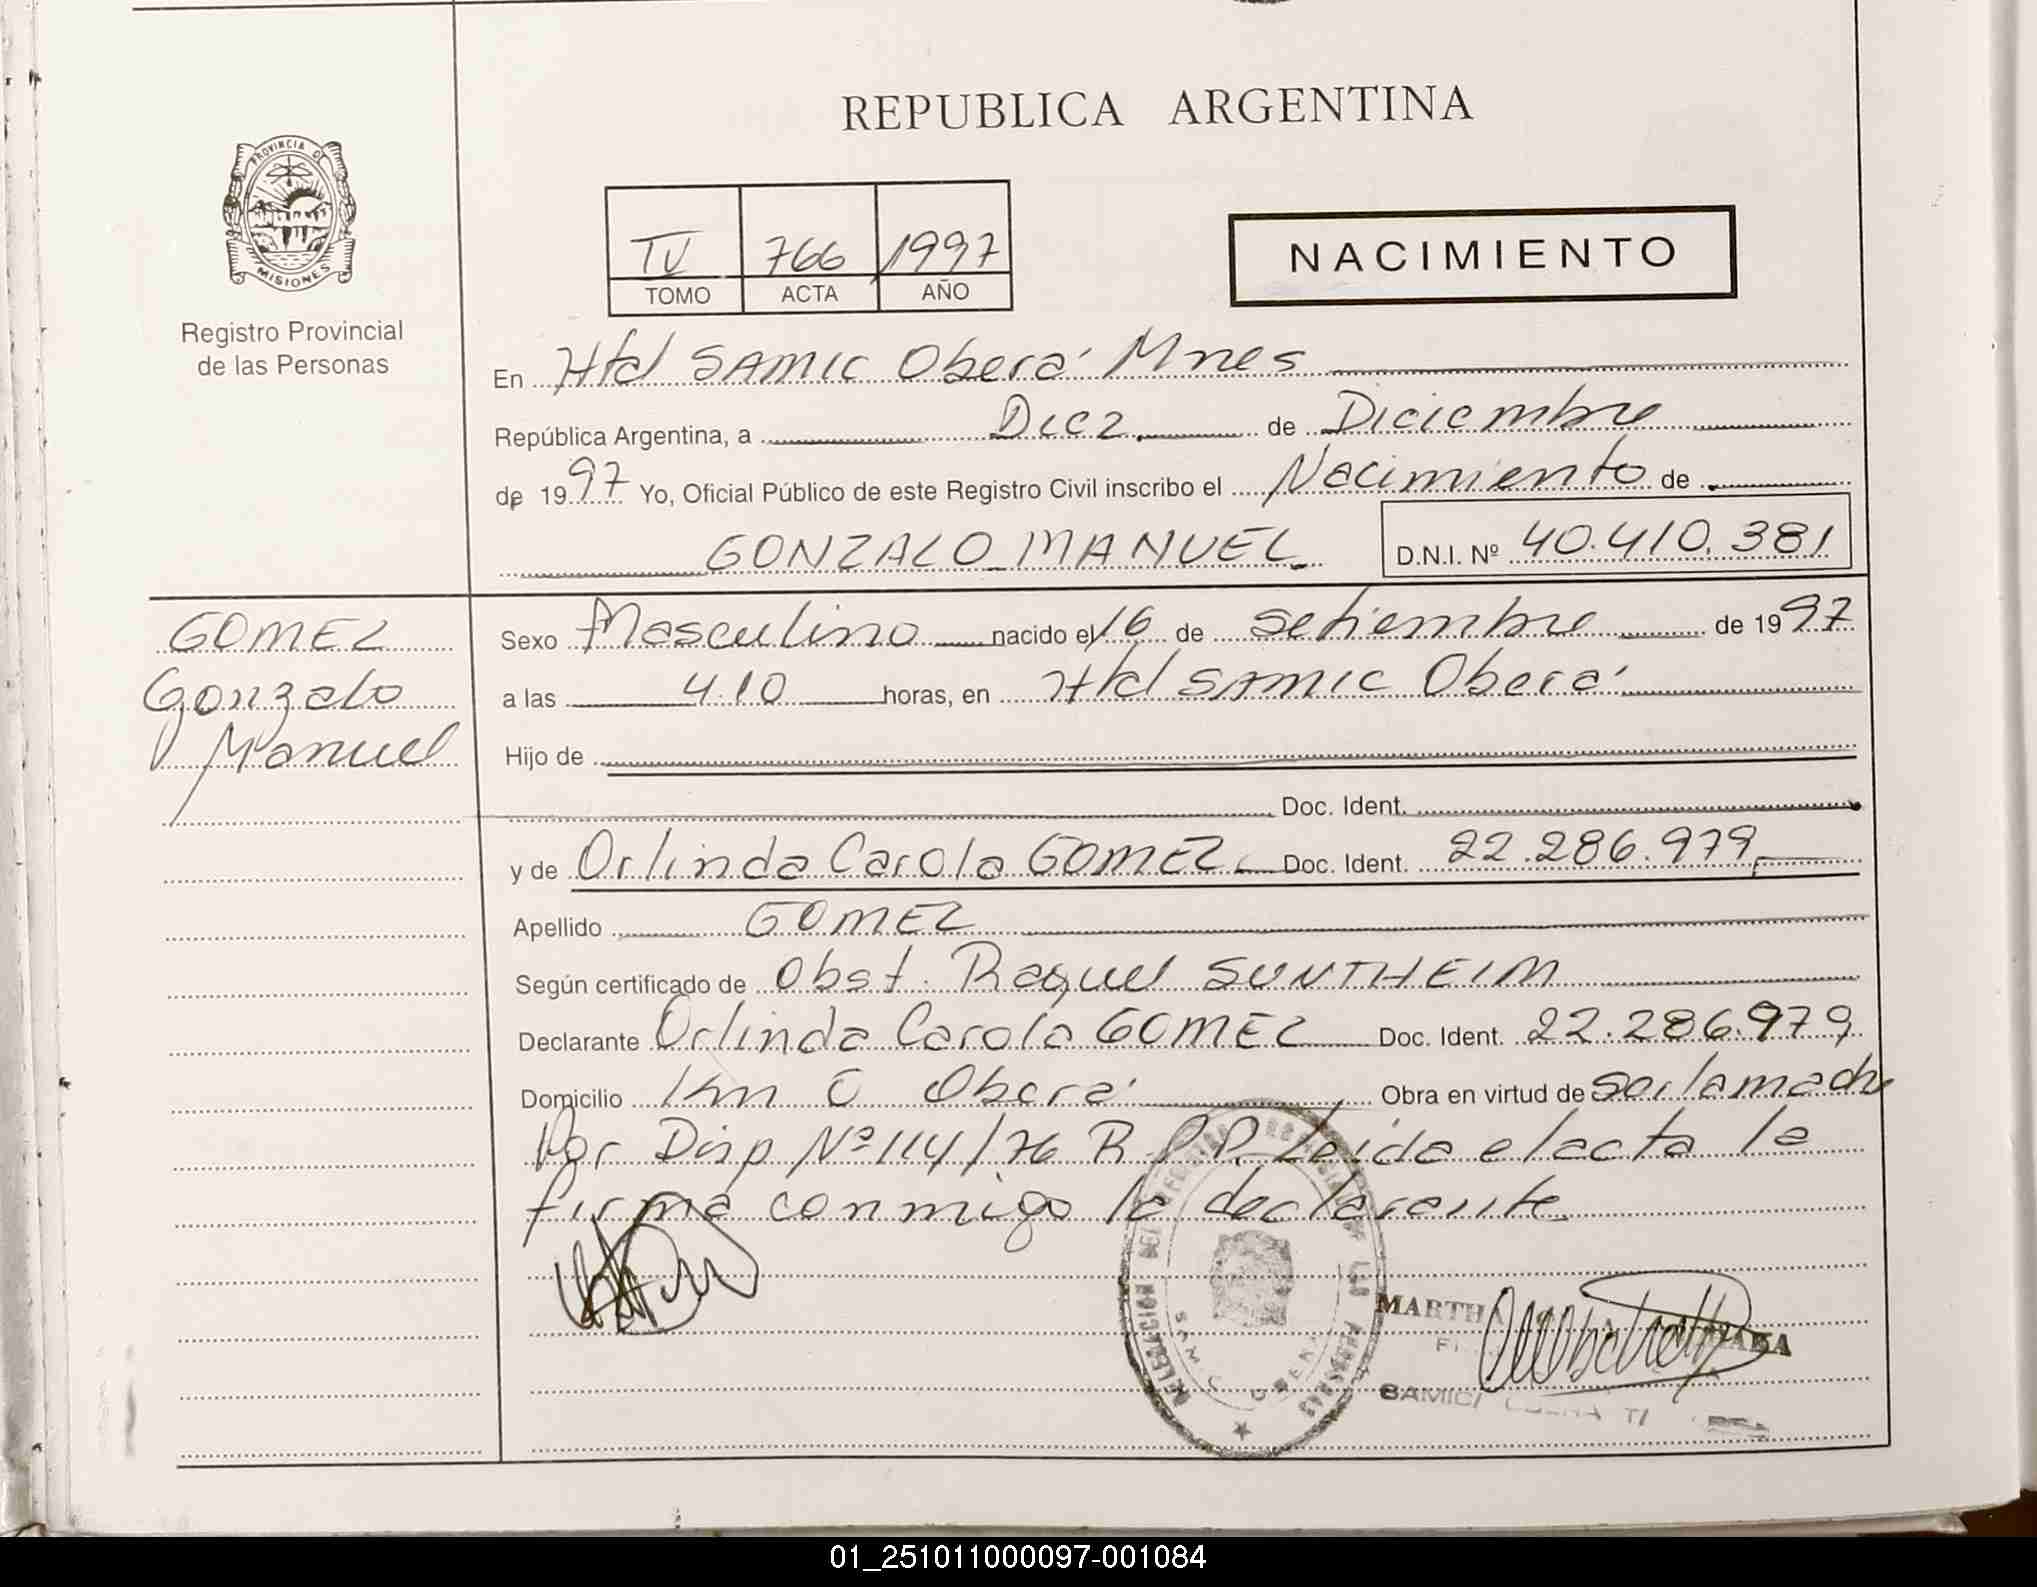 REPUBLICA ARGENTINA
PROVINCIA DE
MISIONES
Registro Provincial
de las Personas
IV 766 1997
TOMO ACTA AÑO
NACIMIENTO
En Htal SAMIC Oberá Mnes
República Argentina, a Diez de Diciembre
de 1997 Yo, Oficial Público de este Registro Civil inscribo el Nacimiento de
GONZALO MANUEL D.N.I. Nº 40.410.381
GOMEZ
Gonzalo
Manuel
Sexo Masculino nacido el 16 de Setiembre de 1997
a las 4.10 horas, en Htal SAMIC Oberá
Hijo de
Doc. Ident.
y de Orlinda Carola GOMEZ Doc. Ident. 22.286.979
Apellido GOMEZ
Según certificado de Obst. Raquel SUNTHEIM
Declarante Orlinda Carola GOMEZ Doc. Ident. 22.286.979
Domicilio Km 0 Oberá Obra en virtud de ser la madre
Por Disp Nº 114/76 R.P.P. Leida el acta la
firma conmigo la declarante
DELEGACION DEL REGISTRO PROVINCIAL DE LAS PERSONAS
SAMIC OBERA
MARTHA
SAMIC
01_251011000097-001084